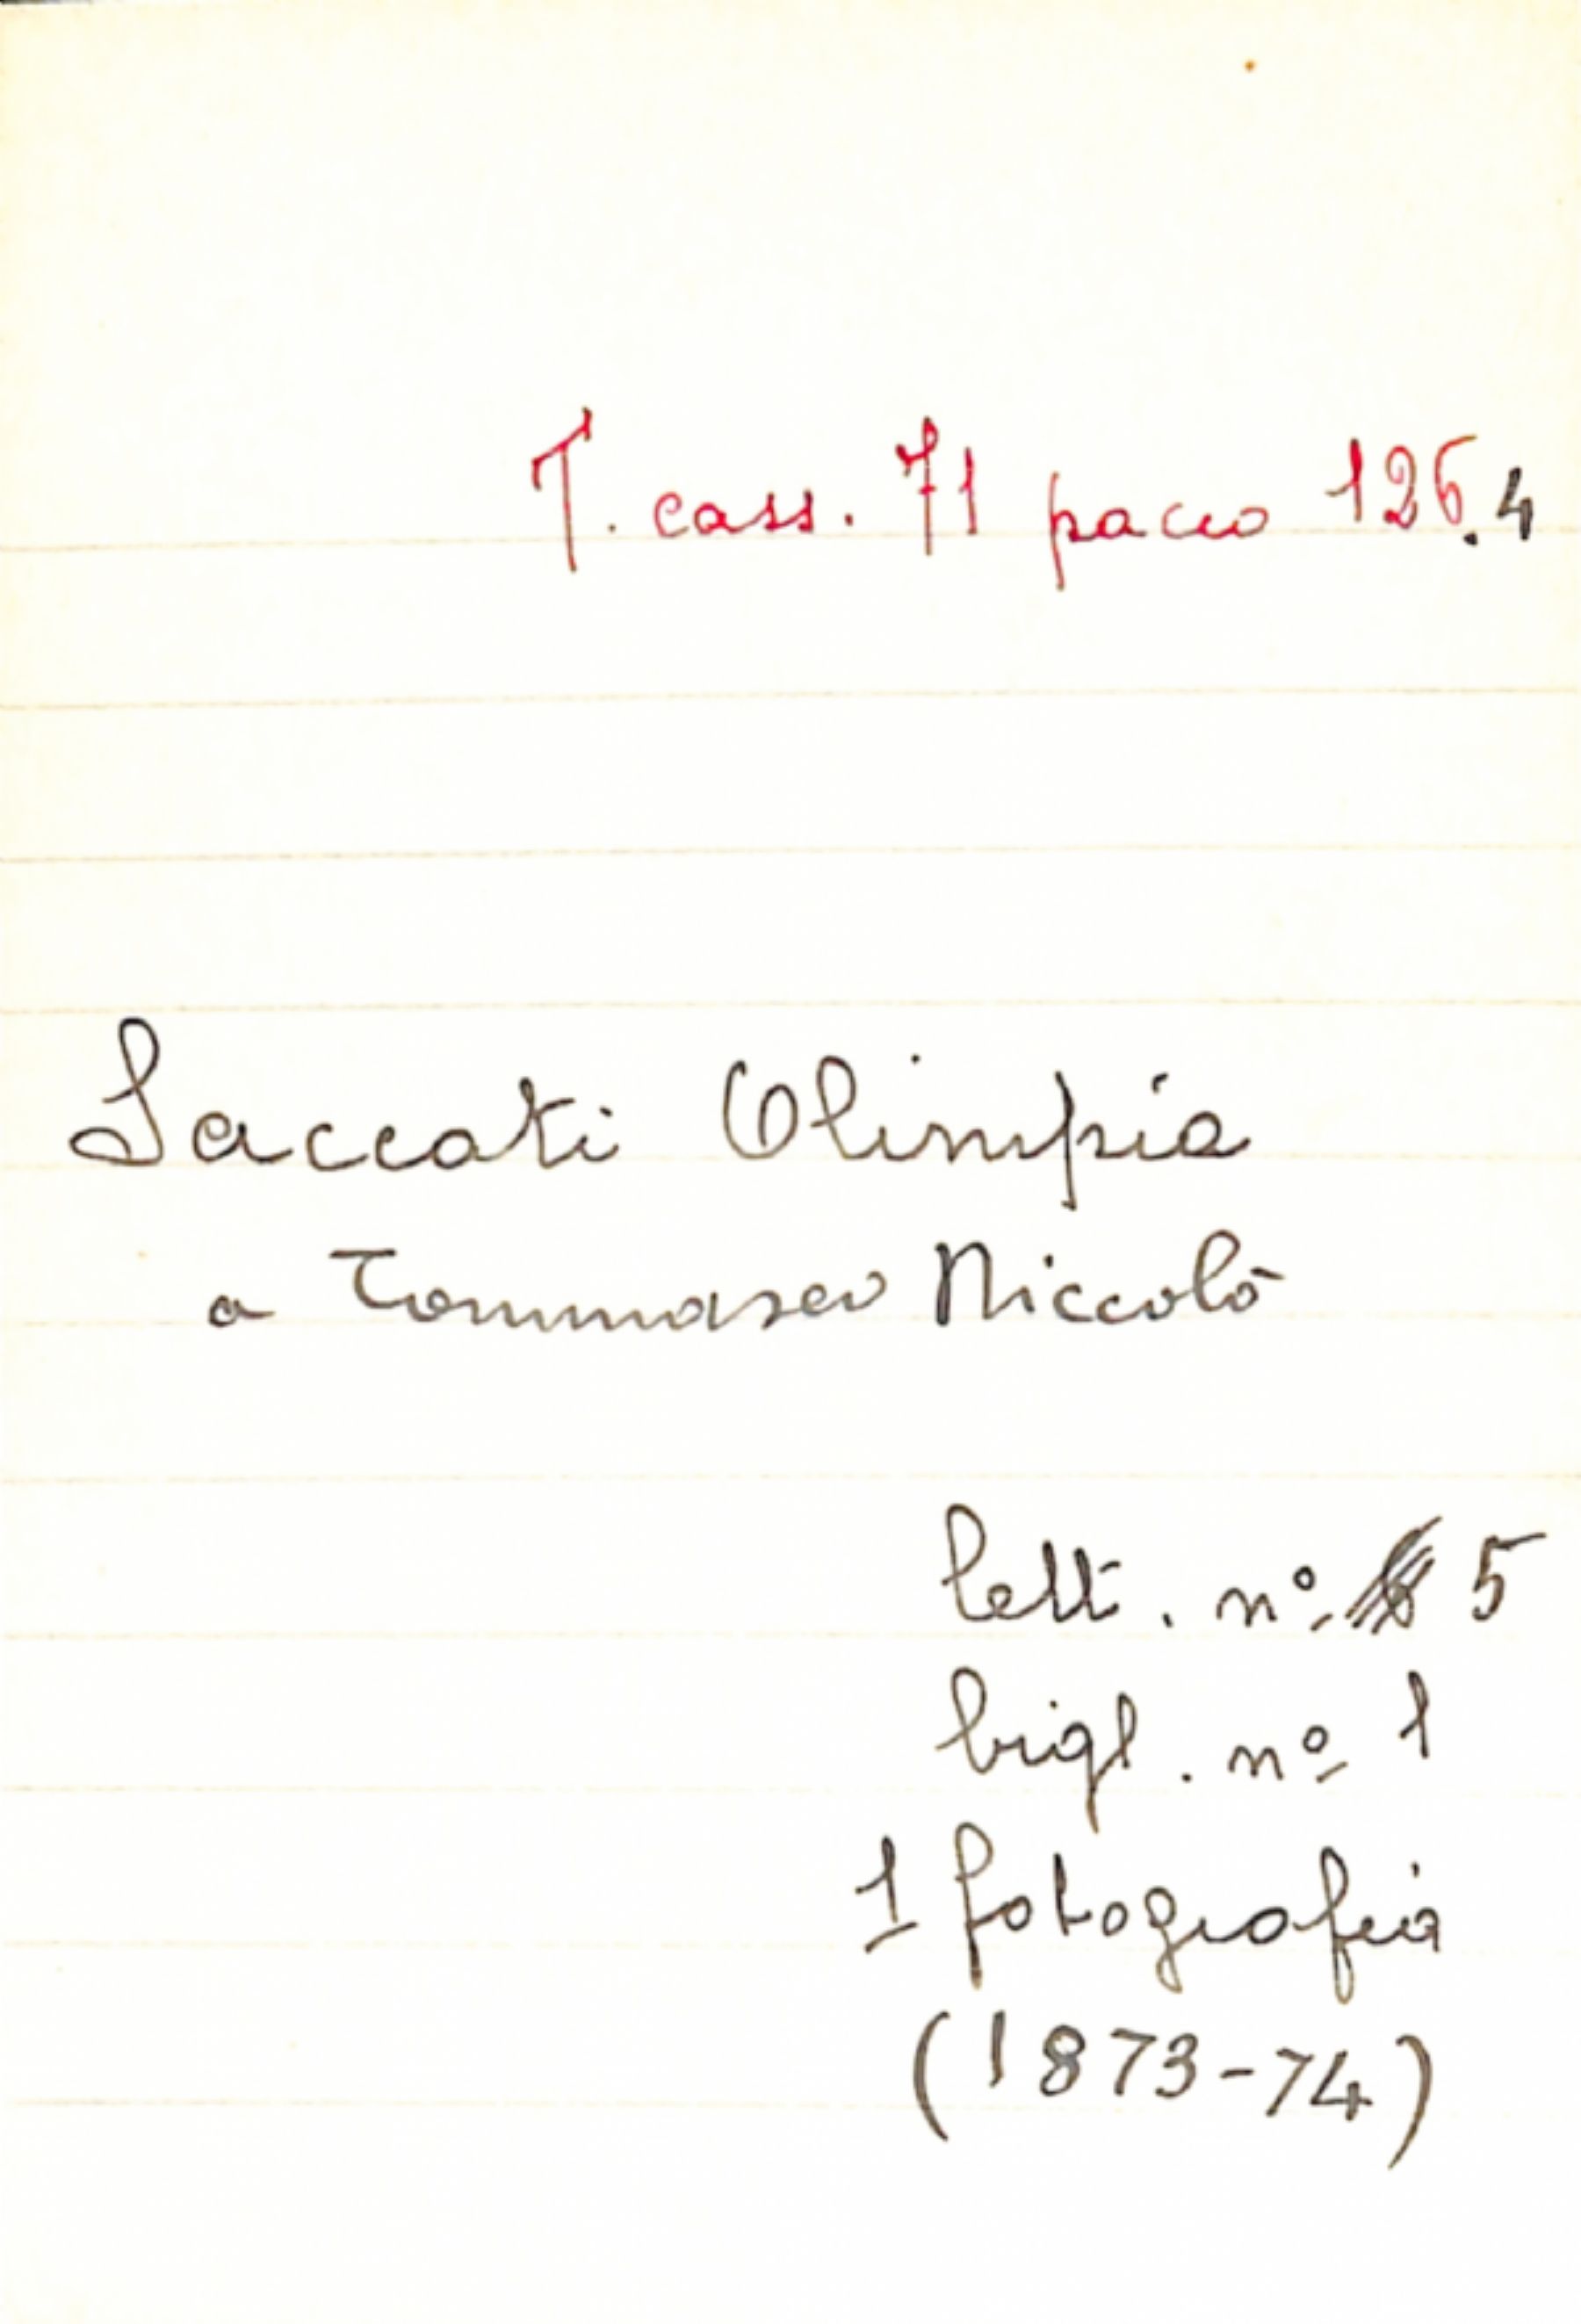 T. cass. 71 pacco 126.4
Saccati Olimpia
a Tommaseo Niccolò
lett. nº 5
bigl. nº 1
1 fotografia
(1873-74)